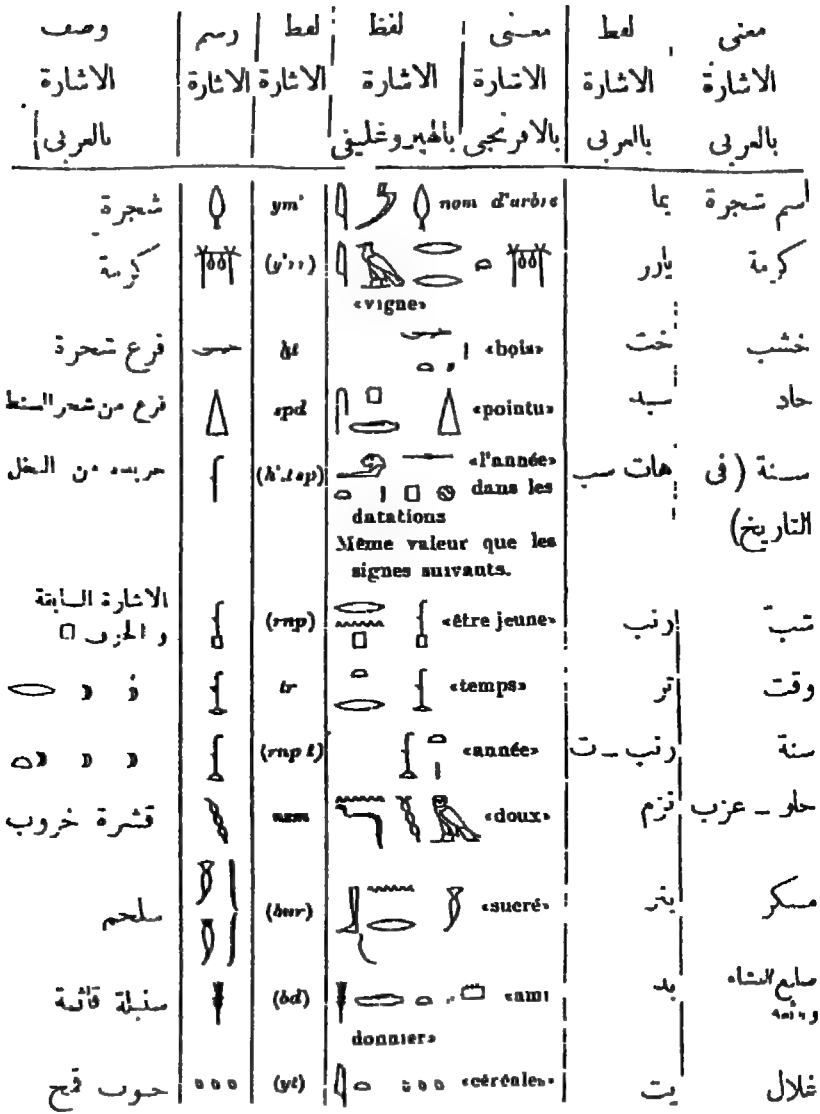 معنى الاشارة بالعربى | لفظ الاشارة بالعربى | معنى الاشارة بالافرنجى | لفظ الاشارة بالهيروغليفى | لفظ الاشارة | رسم الاشارة | وصف الاشارة بالعربى
اسم شجرة | يما | nom d'arbre | ym' | شجرة
كرمة | يارر | «vigne» | كرمة
خشب | خت | «bois» | ḫt | فرع شجرة
حاد | سبد | «pointu» | spd | فرع من شجر السنط
سنة (فى التاريخ) | هات سب | «l'année» dans les datations | من النخل
Même valeur que les signes suivants.
شب | رنب | «être jeune» | (rnp) | الاشارة السابقة و الحرف
وقت | تر | «temps» | tr
سنة | رنب ــ ت | «année» | (rnp t)
حلو ــ عزب | نزم | «doux» | nzm | قشرة خروب
مسكر | بنر | «sucré» | (bnr) | سلحم
بد | «ami donnier» | (bd) | سنبلة قائمة
غلال | يت | «céréales» | (yt) | حبوب قمح